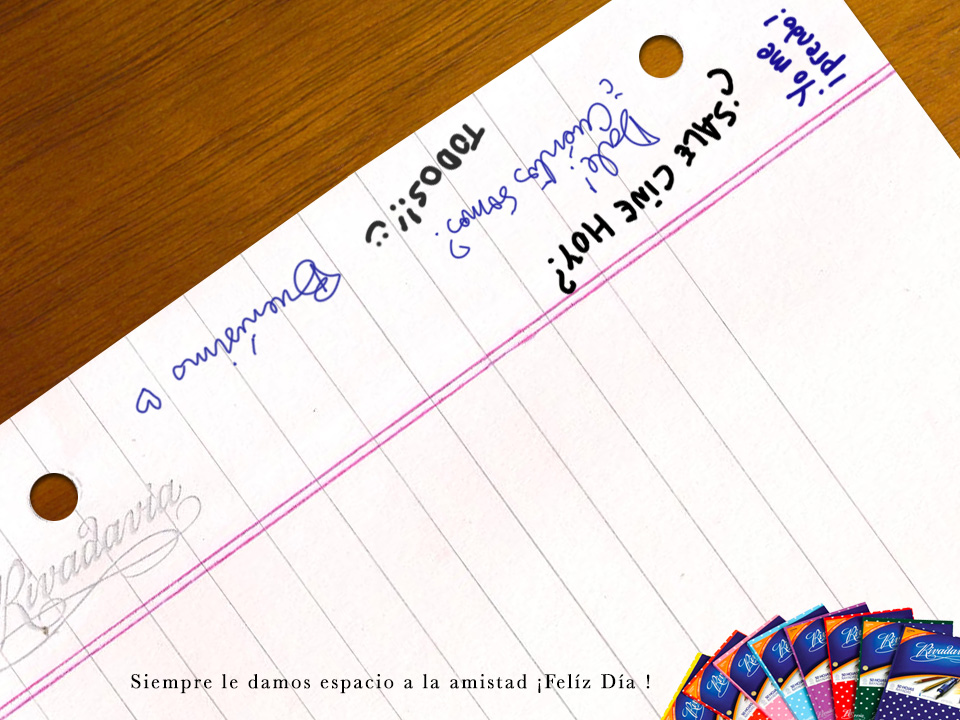 ¿SALE CINE HOY?
Yo me
¡prendo!
Dale!
¿Cuántos somos?
TODOS!!! :)
Buenísimo ♡
Rivadavia
Siempre le damos espacio a la amistad ¡Felíz Día !
Rivadavia